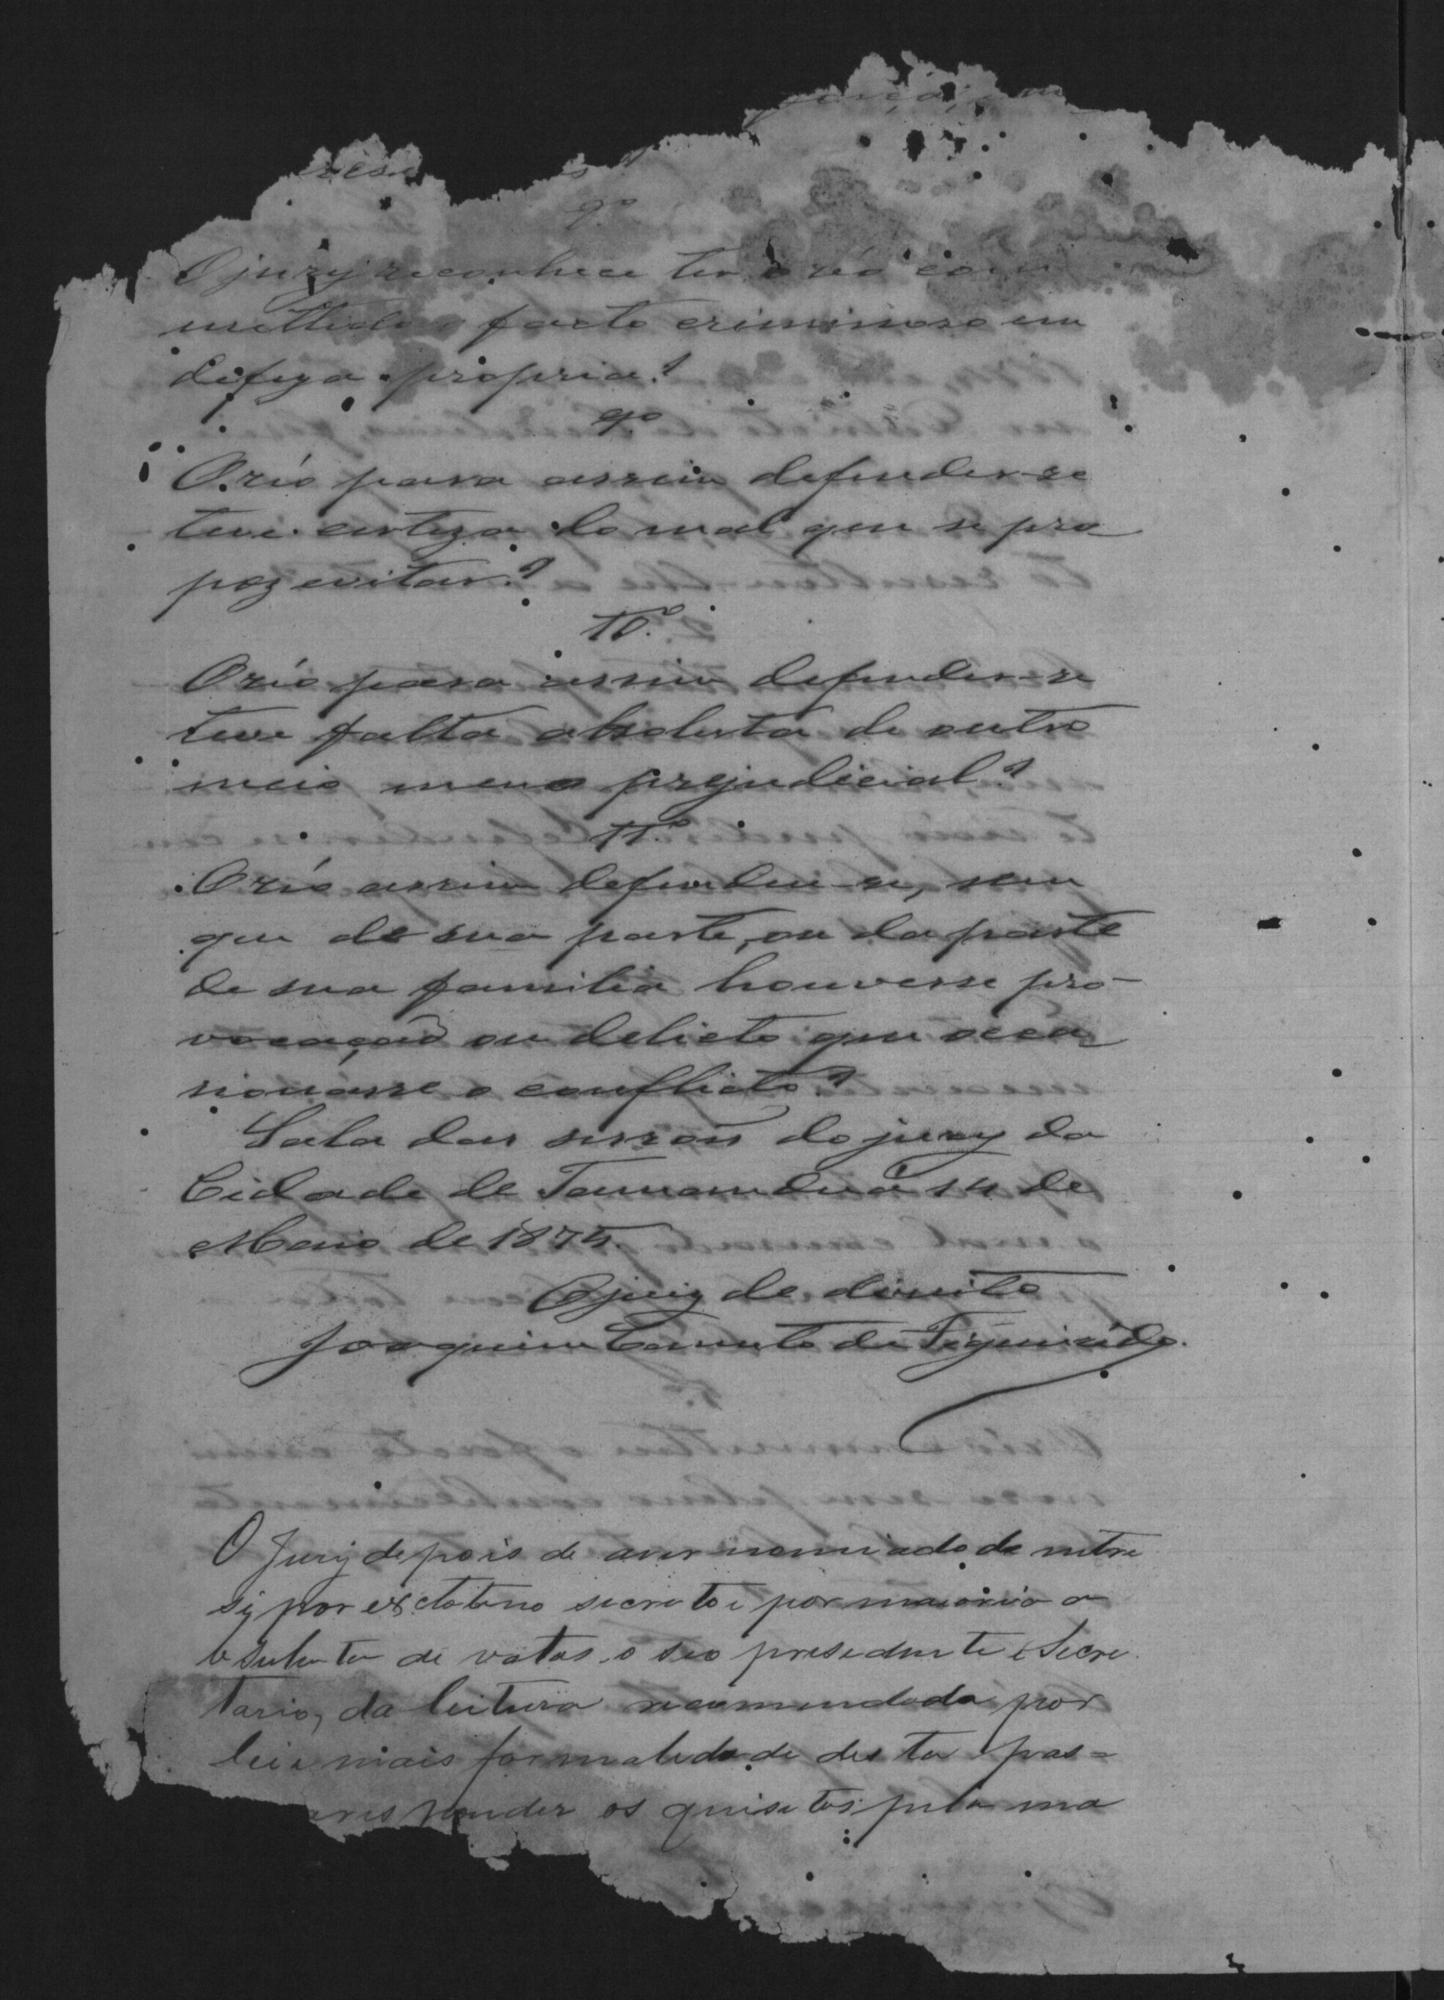 O jury reconhece ter o réo com
mettido o facto criminoso em
defeza propria?
9º
O réo para assim defender-se
teve certeza do mal que se pro-
poz evitar?
10.º
O réo para assim defender-se
teve falta absoluta de outro
meio menos prejudicial?
11.º
O réo assim defendeu-se, sem
que de sua parte, ou da parte
de sua familia houvesse pro-
vocação ou delicto que occa
sionasse o conflicto?
Sala das sessões do jury da
Cidade de Tamanduá 14 de
Maio de 1875.
O juiz de direito
Joaquim Canuto de Figueirêdo.
O Jury depois de aver nomiado de entre
si por esctotino secreto i por maioria a
bsuluta de votos o seo presedente e Secre
tario, da leitura recommendada por
lei e mais formalidade desta pas=
a responder os quisitos pela ma